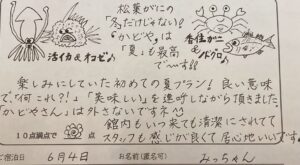 松葉がにの
「冬だけじゃない!
「かどや」は
「夏」も最高
で〜す!!
活イカ&オコゼ♪
香住ガニ
&
ノドグロ♪
楽しみにしていた初めての夏プラン! 良い意味
で、「何これ?!」「美味しい」を連呼しながら頂きました。
「かどやさん」は外さないですネ
館内もいつ来ても清潔にされてて
スタッフも感じが良くて居心地いいです
10点満点で 点
ご宿泊日 6月4日 お名前(匿名可) みっちゃん